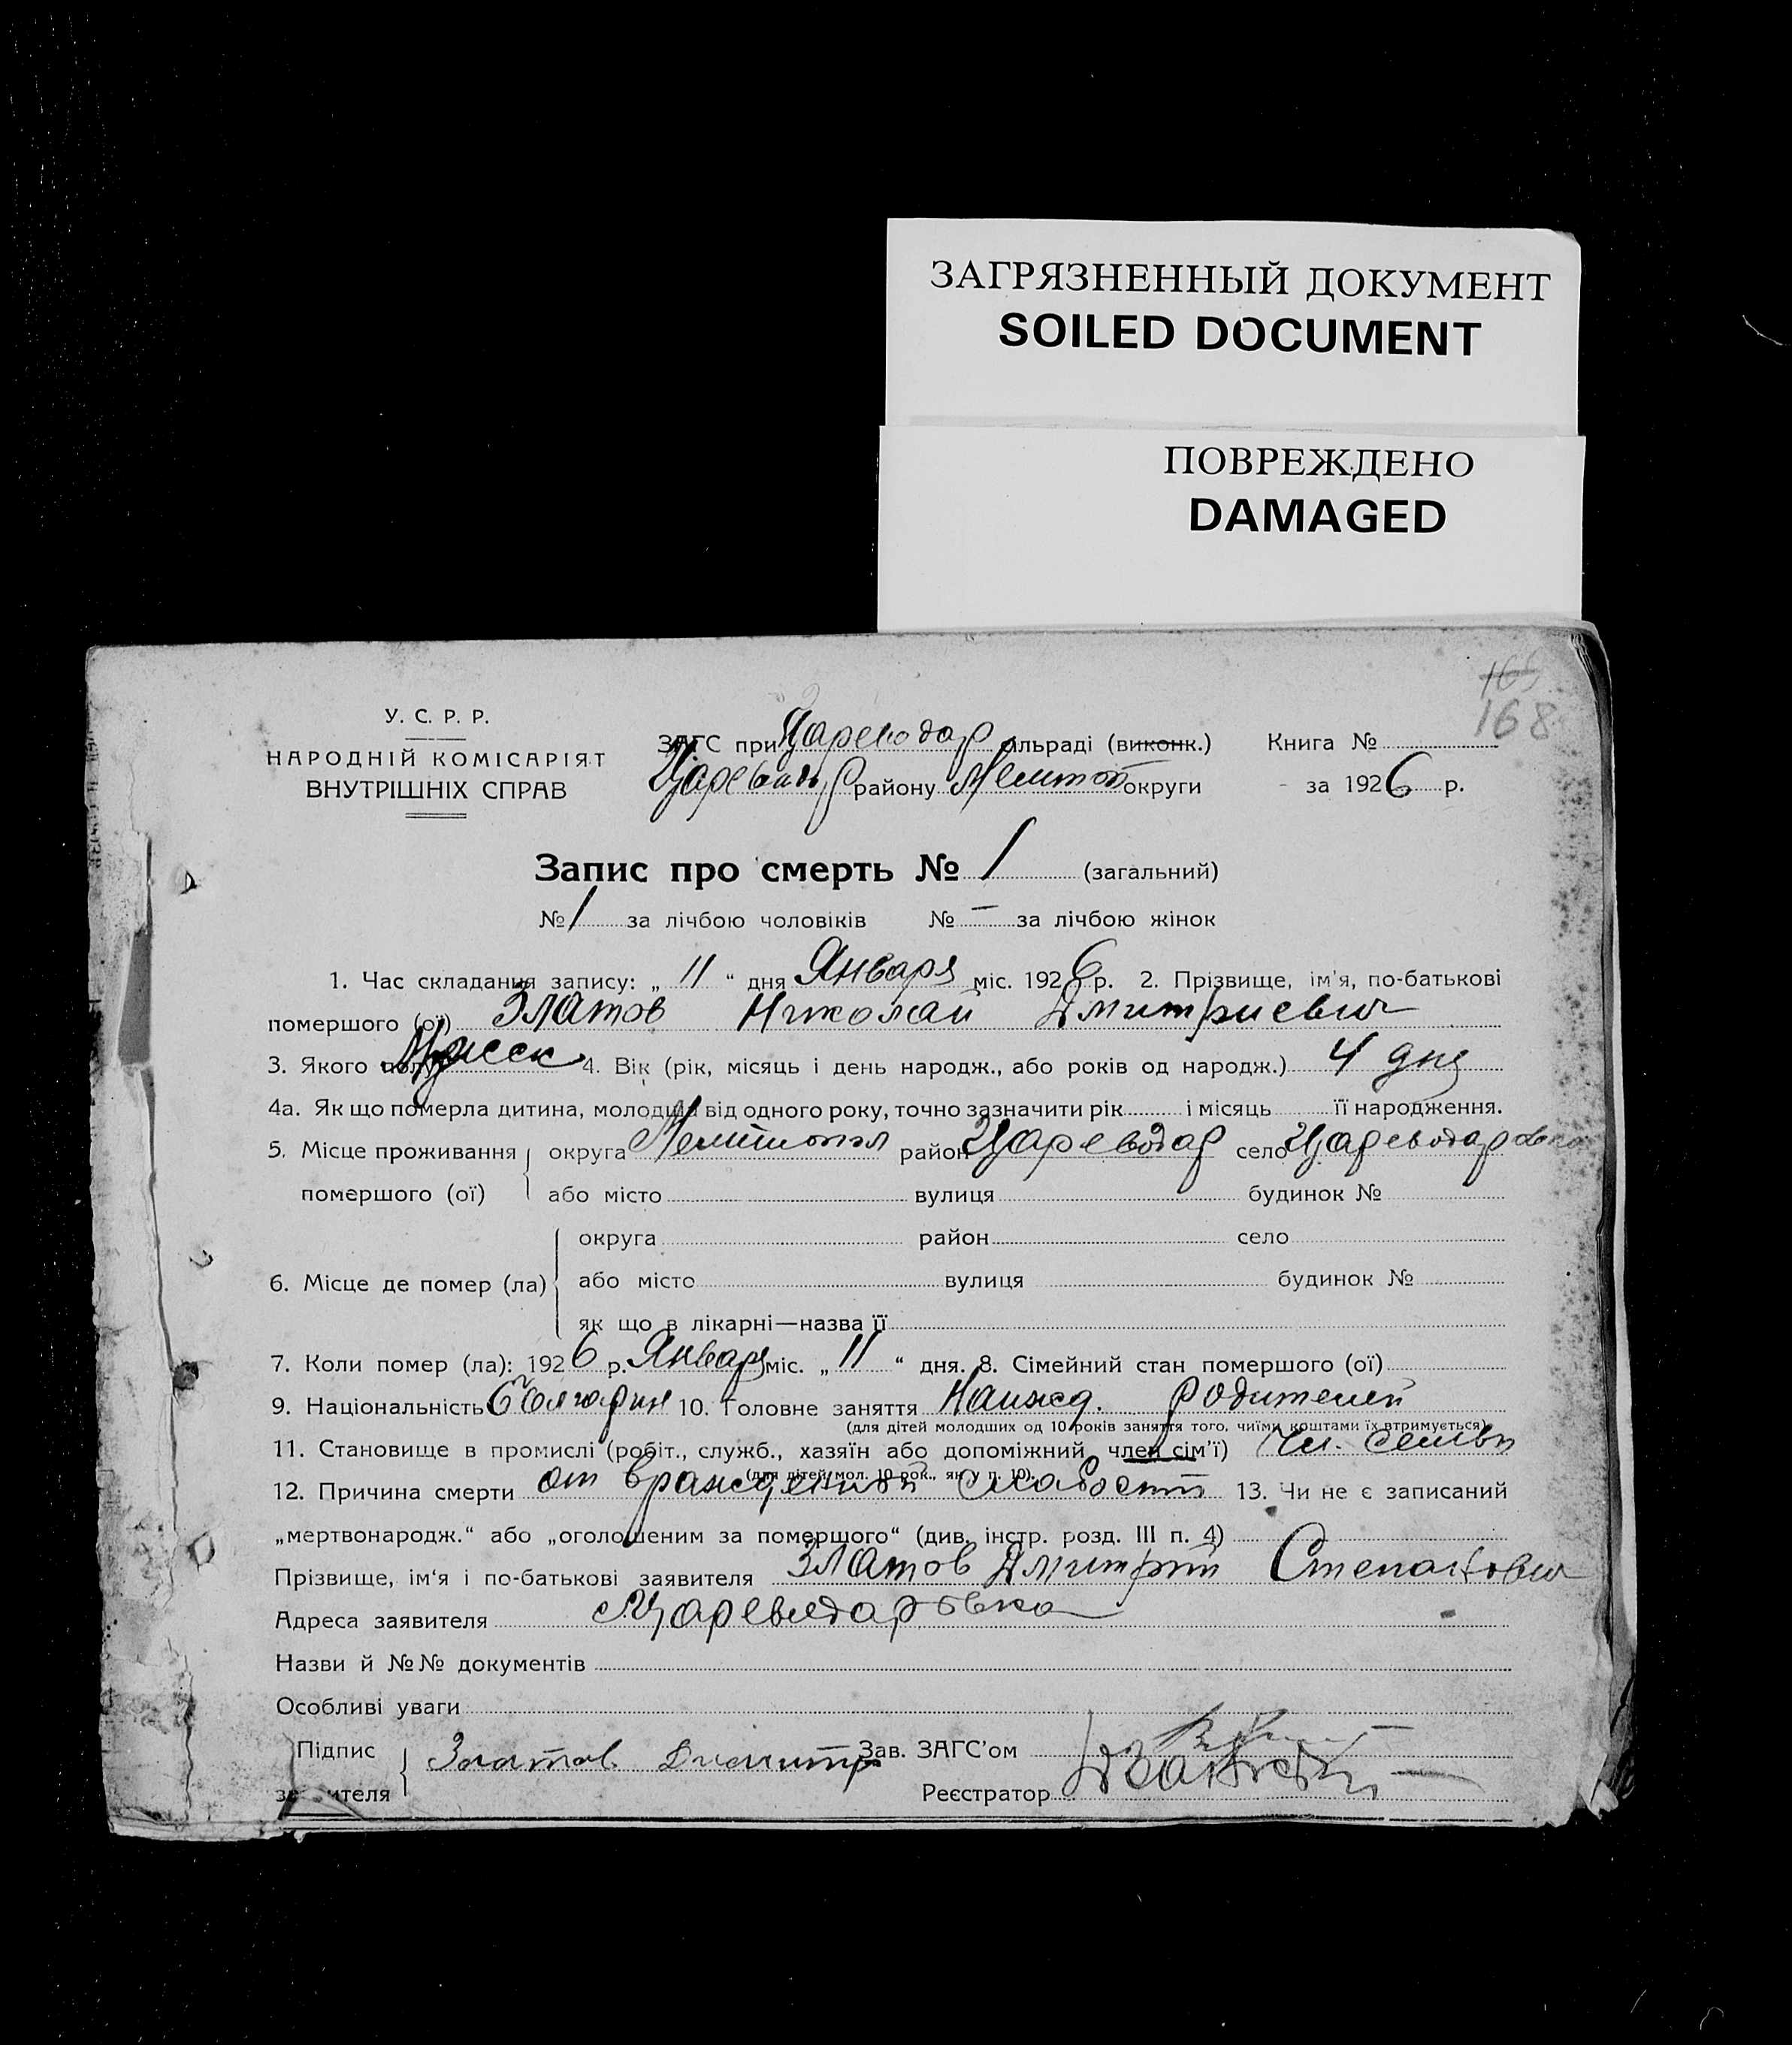 ЗАГРЯЗНЕННЫЙ ДОКУМЕНТ
SOILED DOCUMENT
ПОВРЕЖДЕНО
DAMAGED
168
У. С. Р. Р.
НАРОДНІЙ КОМІСАРІЯТ
ВНУТРІШНІХ СПРАВ
ЗАГС при Цареводар сільраді (виконк.) Книга №
Царевод району Мелитоп округи за 1926 р.
Запис про смерть № 1 (загальний)
№ 1 за лічбою чоловіків № – за лічбою жінок
1. Час складання запису: „ 11 “ дня Января міс. 1926 р. 2. Прізвище, ім'я, по-батькові
помершого (ої) Златов Николай Дмитриевич
3. Якого полу Мужск 4. Вік (рік, місяць і день народж., або років од народж.) 4 дня
4а. Як що померла дитина, молодша від одного року, точно зазначити рік і місяць її народження.
5. Місце проживання округа Мелитопол район Цареводар село Цареводаровка
помершого (ої) або місто вулиця будинок №
округа район село
6. Місце де помер (ла) або місто вулиця будинок №
як що в лікарні—назва її
7. Коли помер (ла): 1926 р. Января міс. „ 11 “ дня. 8. Сімейний стан помершого (ої)
9. Національність болгарин 10. Головне заняття На ижд. родителей
(для дітей молодших од 10 років заняття того, чиїми коштами їх втримується)
11. Становище в промислі (робіт., служб., хазяїн або допоміжний член сім'ї) чл. семьи
(для дітей мол. 10 рок., як у п. 10).
12. Причина смерти от врожденной слабости 13. Чи не є записаний
„мертвонародж.“ або „оголошеним за помершого“ (див. інстр. розд. III п. 4)
Прізвище, ім'я і по-батькові заявителя Златов Дмитрий Степанович
Адреса заявителя с. Цареводаровка
Назви й №№ документів
Особливі уваги
Підпис Златов Димитр Зав. ЗАГС'ом
заявителя Реєстратор